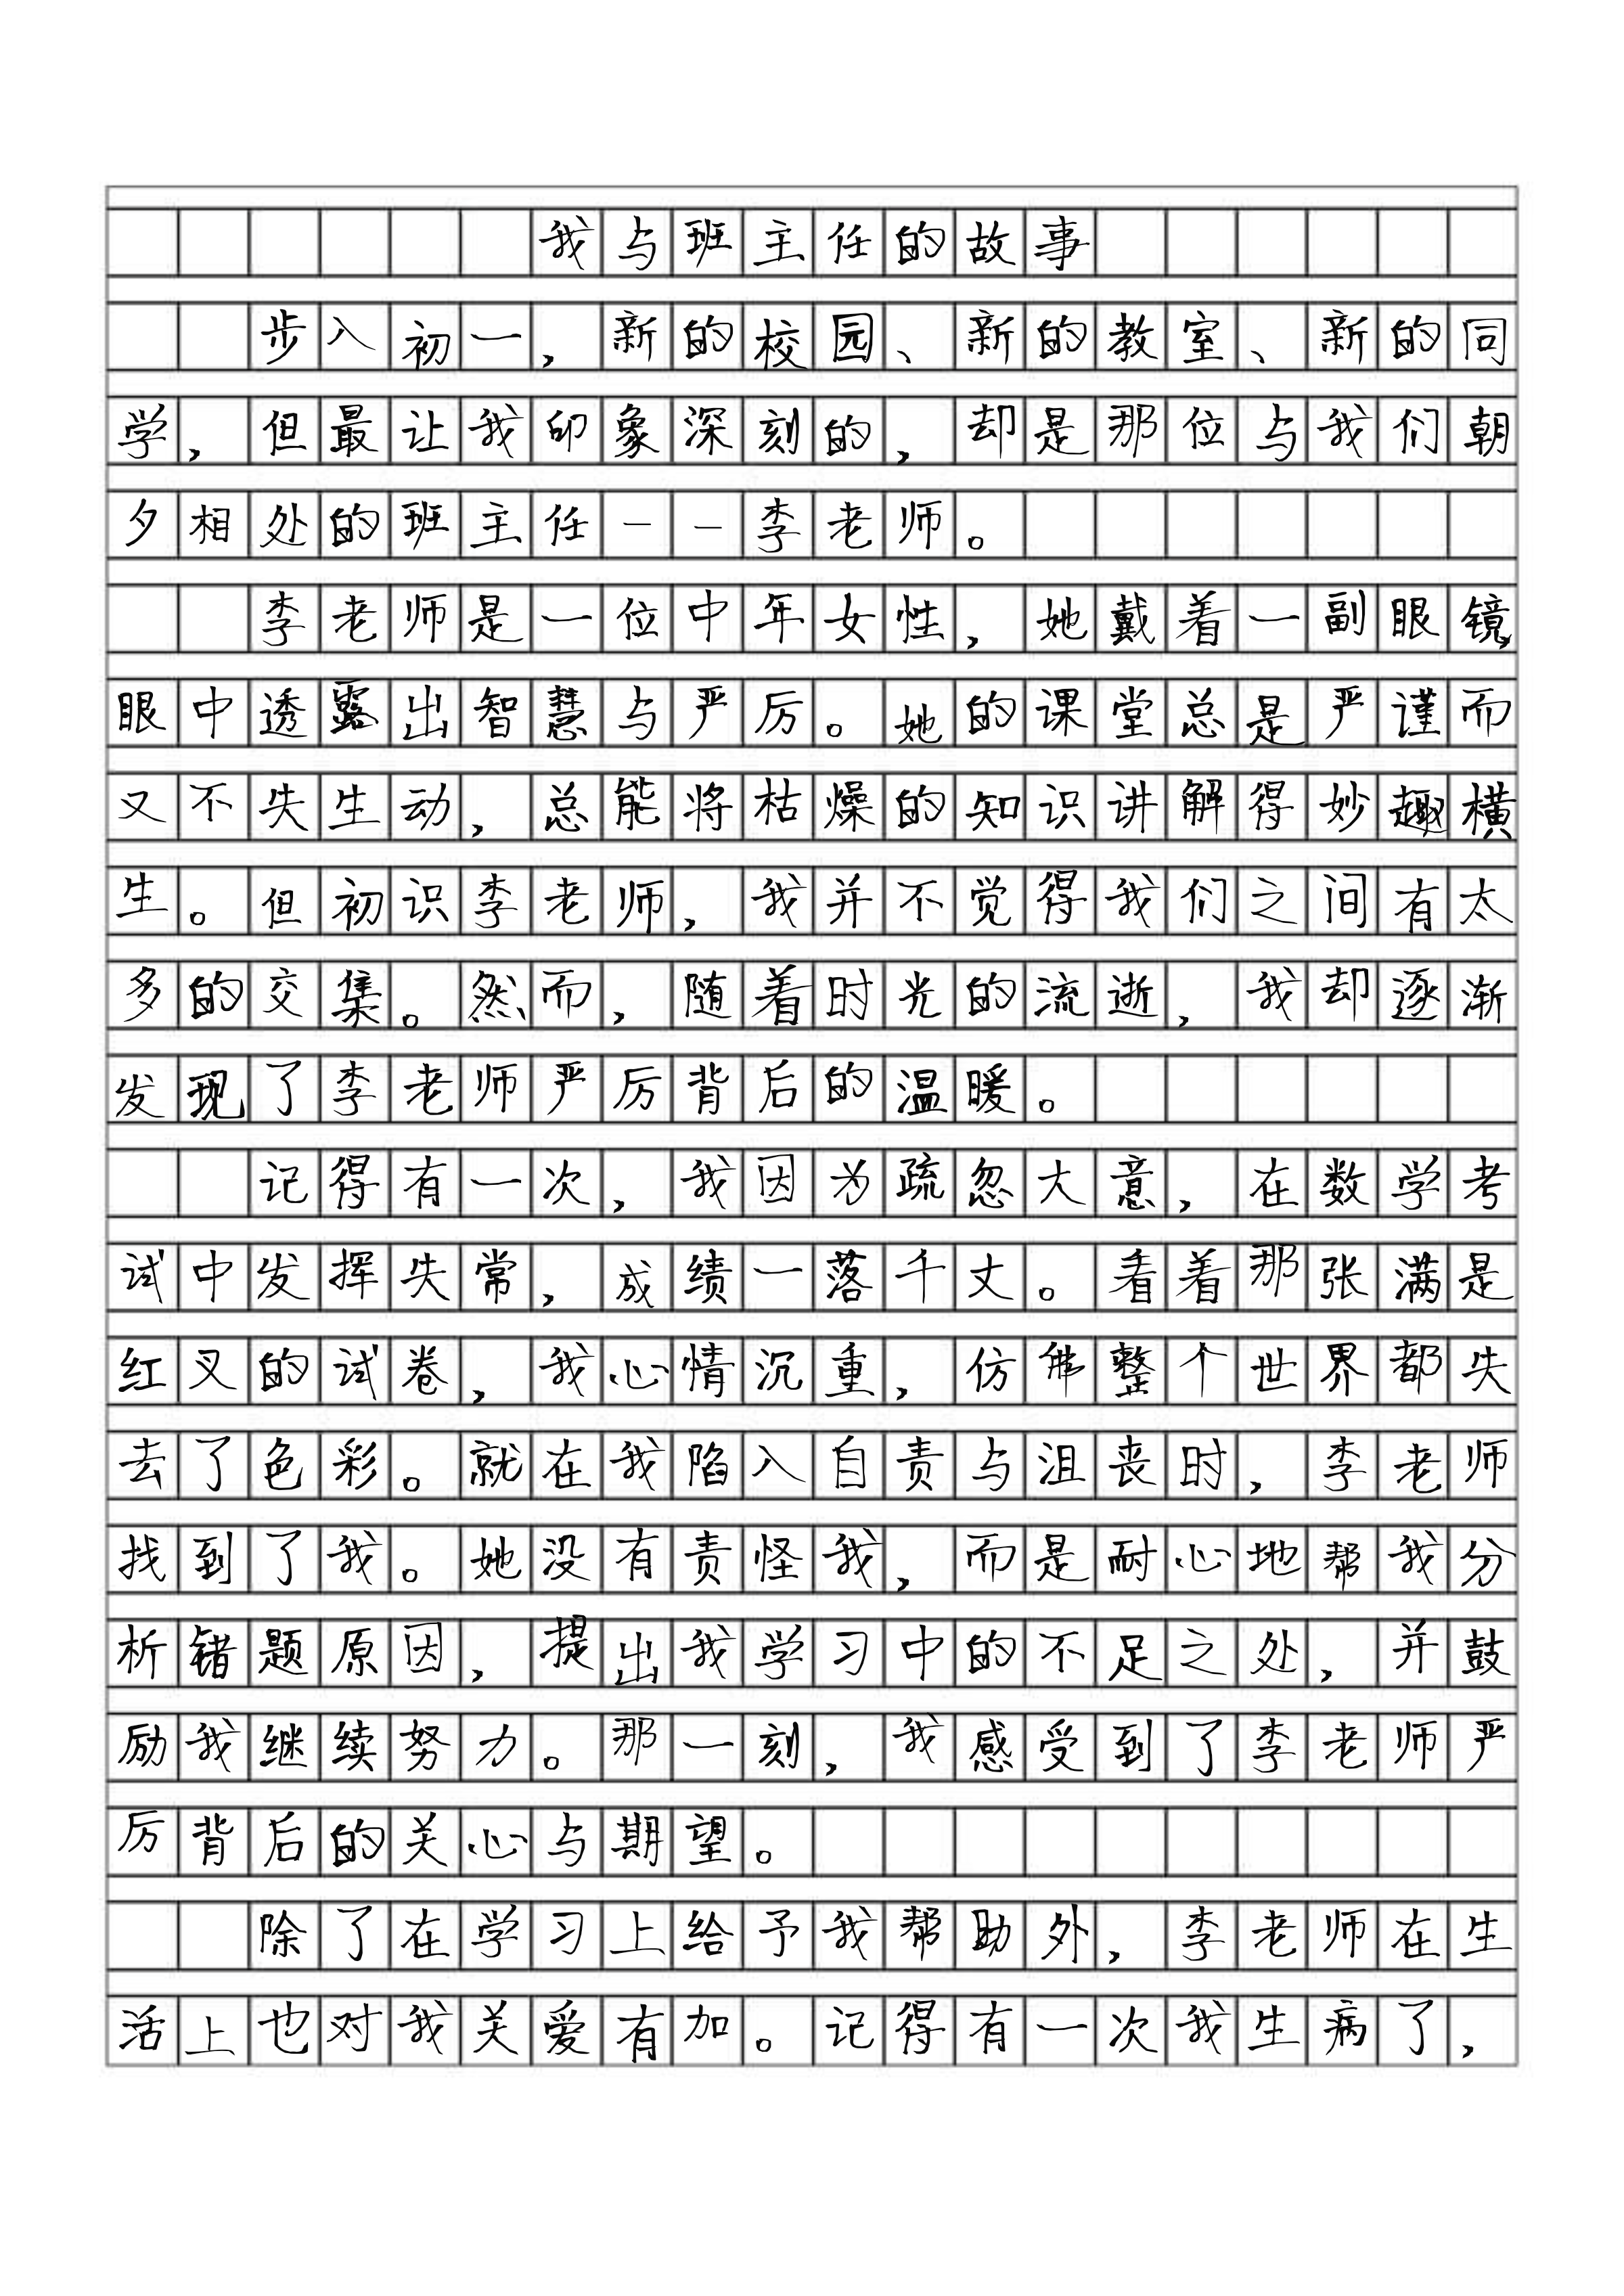 我与班主任的故事
步入初一，新的校园、新的教室、新的同
学，但最让我印象深刻的，却是那位与我们朝
夕相处的班主任——李老师。
李老师是一位中年女性，她戴着一副眼镜，
眼中透露出智慧与严厉。她的课堂总是严谨而
又不失生动，总能将枯燥的知识讲解得妙趣横
生。但初识李老师，我并不觉得我们之间有太
多的交集。然而，随着时光的流逝，我却逐渐
发现了李老师严厉背后的温暖。
记得有一次，我因为疏忽大意，在数学考
试中发挥失常，成绩一落千丈。看着那张满是
红叉的试卷，我心情沉重，仿佛整个世界都失
去了色彩。就在我陷入自责与沮丧时，李老师
找到了我。她没有责怪我，而是耐心地帮我分
析错题原因，提出我学习中的不足之处，并鼓
励我继续努力。那一刻，我感受到了李老师严
厉背后的关心与期望。
除了在学习上给予我帮助外，李老师在生
活上也对我关爱有加。记得有一次我生病了，